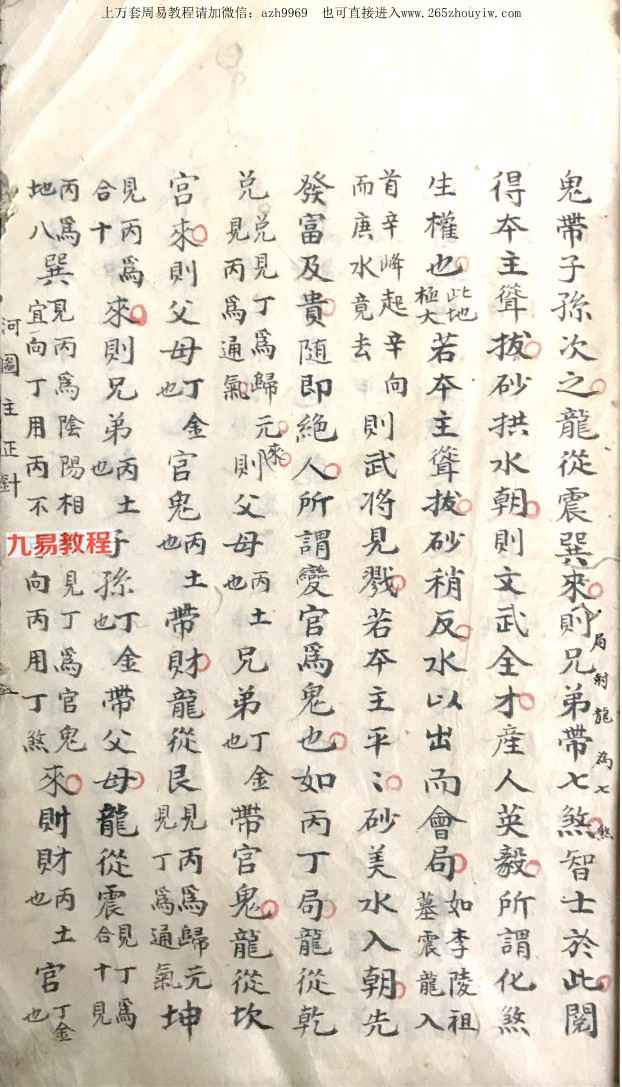 上万套周易教程请加微信：azh9969　也可直接进入www.265zhouyiw.com
鬼帶子孫次之龍從震巽來則兄弟帶七煞智士於此閱
局射龍為七煞
得夲主聳拔砂拱水朝則文武全才産人英毅所謂化煞
生權也此地極大若夲主聳拔砂稍反水以出而會局如李陵祖墓震龍入
首辛峰起辛向而庚水竟去則武将見戮若夲主平〻砂美水入朝先
發富及貴随即絶人所謂變官為鬼也如丙丁局龍從乾
兌兌見丁為歸元見丙為通氣來則父母丙土也兄弟丁金也帶官鬼龍從坎
宮來則父母丁金也官鬼丙土也帶財龍從艮見丙為歸元見丁為通氣坤
見丙為合十來則兄弟丙土也子孫丁金也帶父母龍從震見丁為合十見
丙為地八巽見丙為陰陽相見丁為官鬼宜向丁用丙不向丙用丁煞來則財丙土也官丁金也
河圖主正對
九易教程